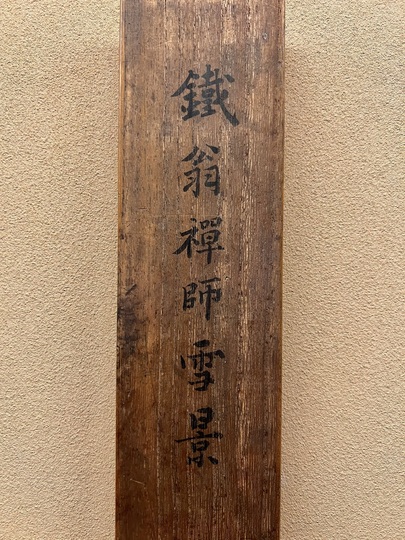 鐵翁禪師雪景